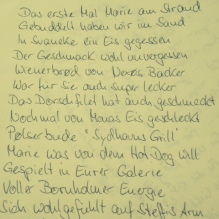 Das erste Mal Marie am Strand
Gebuddelt haben wir im Sand
In Svaneke ein Eis gegessen
Der Geschmack wohl unvergessen
Wienerbrød von Nexøs Bäcker
War für sie auch super lecker
Das Dorschfilet hat auch geschmeckt
Nochmal von Mamas Eis geschleckt
Pølserbude "Sydhavns Grill"
Marie was von dem Hot Dog will
Gespielt in Eurer Galerie
Voller Bornholmer Energie
Sich wohlgefühlt auf Steffis Arm